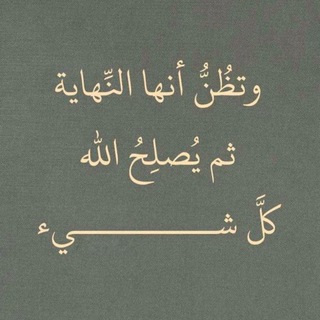 وتظُنُّ أنها النِّهاية
ثم يُصلِحُ الله
كلَّ شـــــــــــــيء